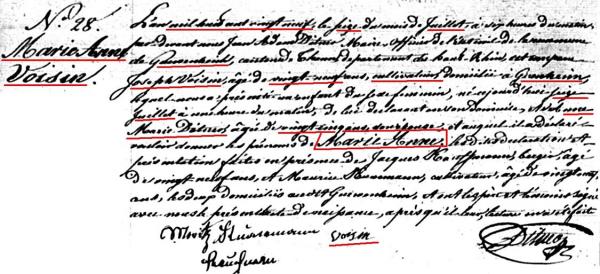 N.° 28.
Marie Anne
Voisin.
L'an mil huit cent vingt neuf, le seize du mois de Juillet, à six heures du matin,
par devant nous Jean Adam Ditner Maire, Officier de l'état civil de la commune
de Guewenheim, canton de Thann département du haut Rhin, est comparu
Joseph Voisin, âgé de vingt neuf ans, cultivateur domicilié à Guewenheim,
lequel nous a présenté un enfant du sexe féminin, né ce jourd'hui seize
Juillet à une heure du matin, de lui déclarant en son Domicile, et
Marie âgée de vingt cinq ans son épouse, et auquel il a déclaré
vouloir donner le prénom de Marie Anne, lesdites déclaration et
présentation faites en présence de Jacques berger, âgé
de vingt neuf ans, et Maurice cultivateur, âgé de vingt ans,
tous deux domiciliés audit Guewenheim, et ont les père et témoins signé
avec nous le présent acte de naissance, après qu'il leur lecture en a été fait
Moritz voisin
Ditner